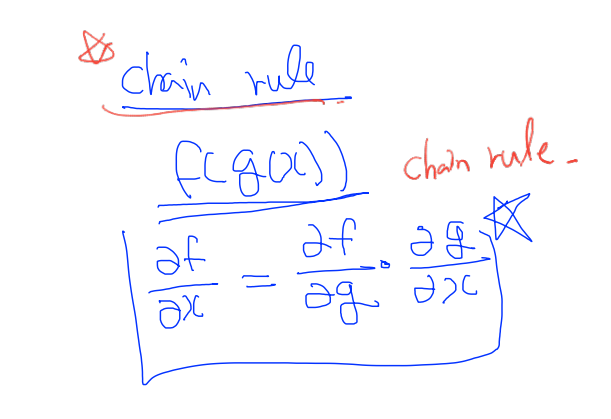 chain rule
f(g(x))
chain rule.
∂f/∂x = ∂f/∂g · ∂g/∂x